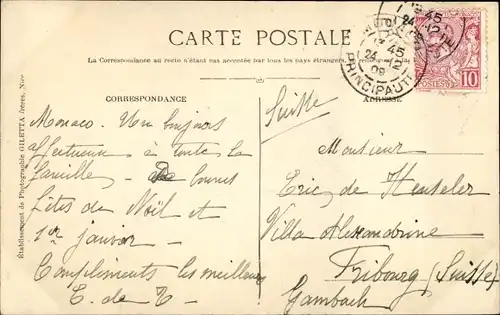 CARTE POSTALE
La Correspondance au recto n'étant pas acceptée par tous les pays étrangers
CORRESPONDANCE
ADRESSE
Suisse
45
24 12
09
PRINCIPAUTÉ
POSTES
10
Établissement de Photographie GILETTA frères, Nice
Monaco. Un toujours
affectueux à toute la
famille - bonnes
fêtes de Noël et
1er janvier
Compliments les meilleurs
E. de T
Monsieur
Eric de Henseler
Villa Alexandrine
Fribourg (Suisse)
Gambach